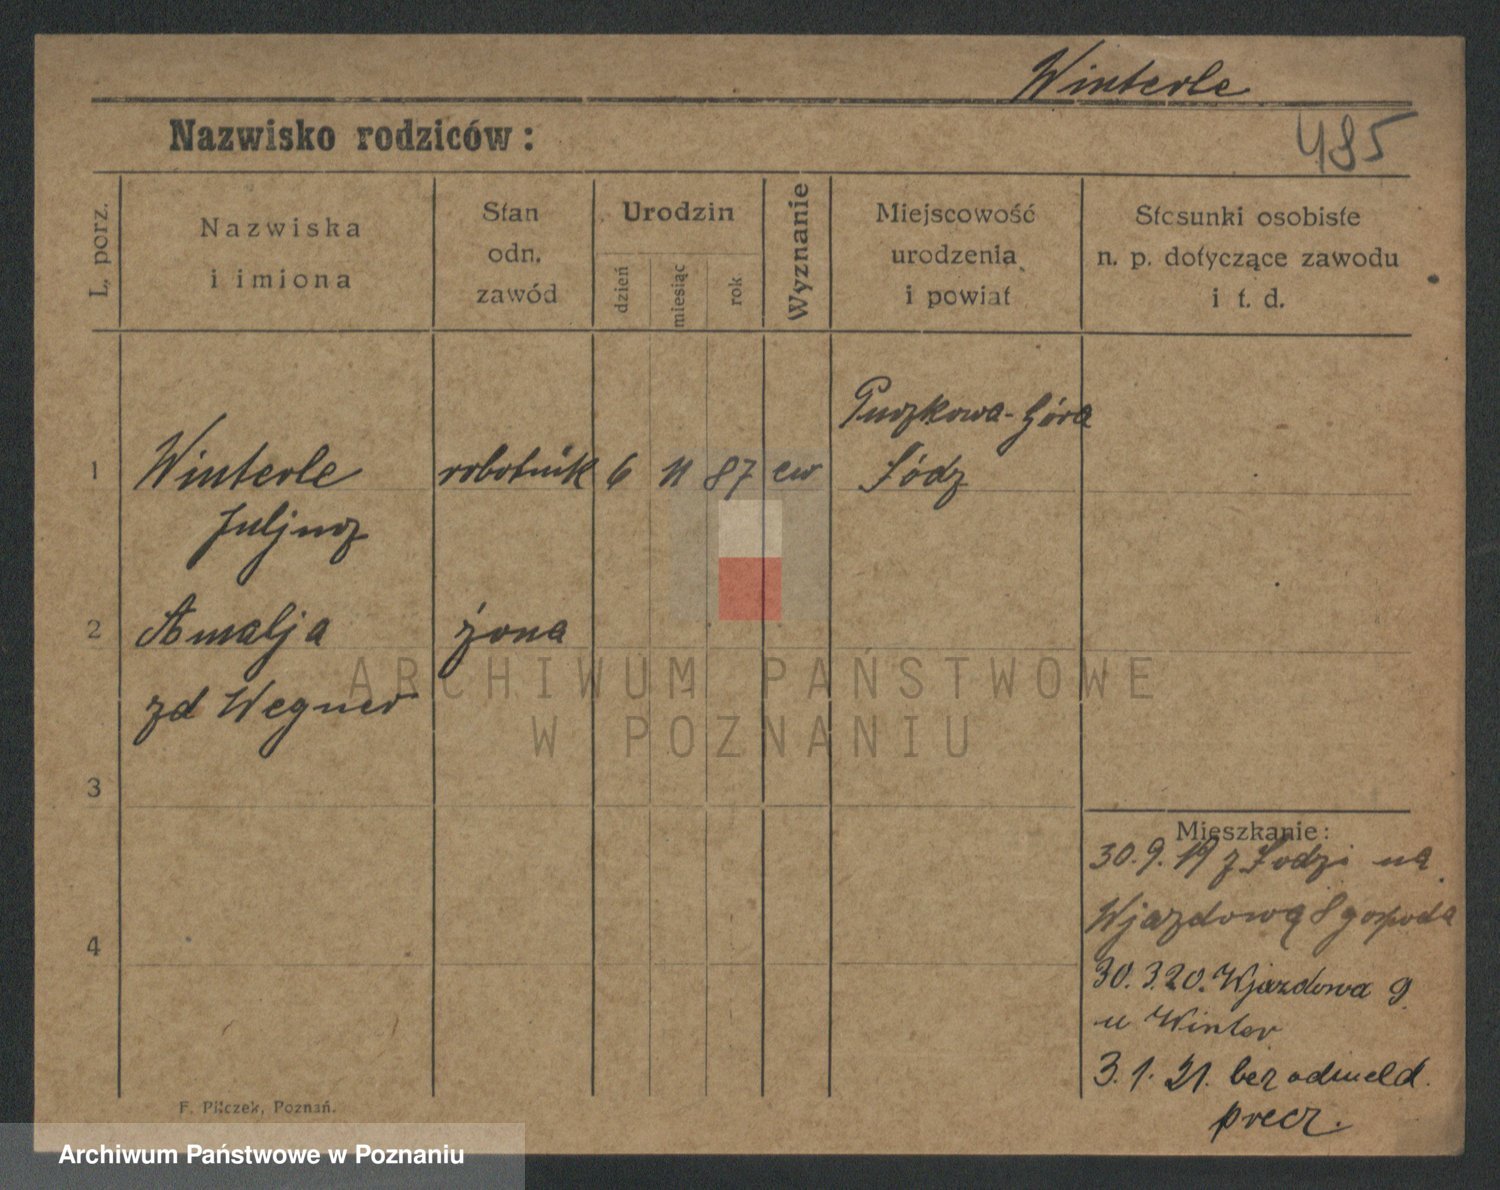 Winterle
Nazwisko rodziców:
485
L. porz.
Nazwiska
i imiona
Stan
odn.
zawód
Urodzin
dzień
miesiąc
rok
Wyznanie
Miejscowość
urodzenia
i powiat
Stosunki osobiste
n. p. dotyczące zawodu
i t. d.
1
Winterle
Juljusz
robotnik
6
11
87
ew
Puczkowa-Góra
Łódz
2
Amalja
zd Wegner
żona
3
4
Mieszkanie:
30.9.19 z Łodzi na
Wjazdową 8 gospoda
30.3.20. Wjazdowa 9
u Winter
3.1.21. bez odmeld.
precz.
F. Pilczek, Poznań.
ARCHIWUM PAŃSTWOWE
W POZNANIU
Archiwum Państwowe w Poznaniu